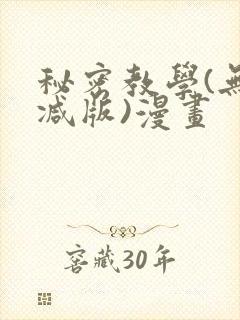 秘密教學(無
减版)漫畫
窖藏30年